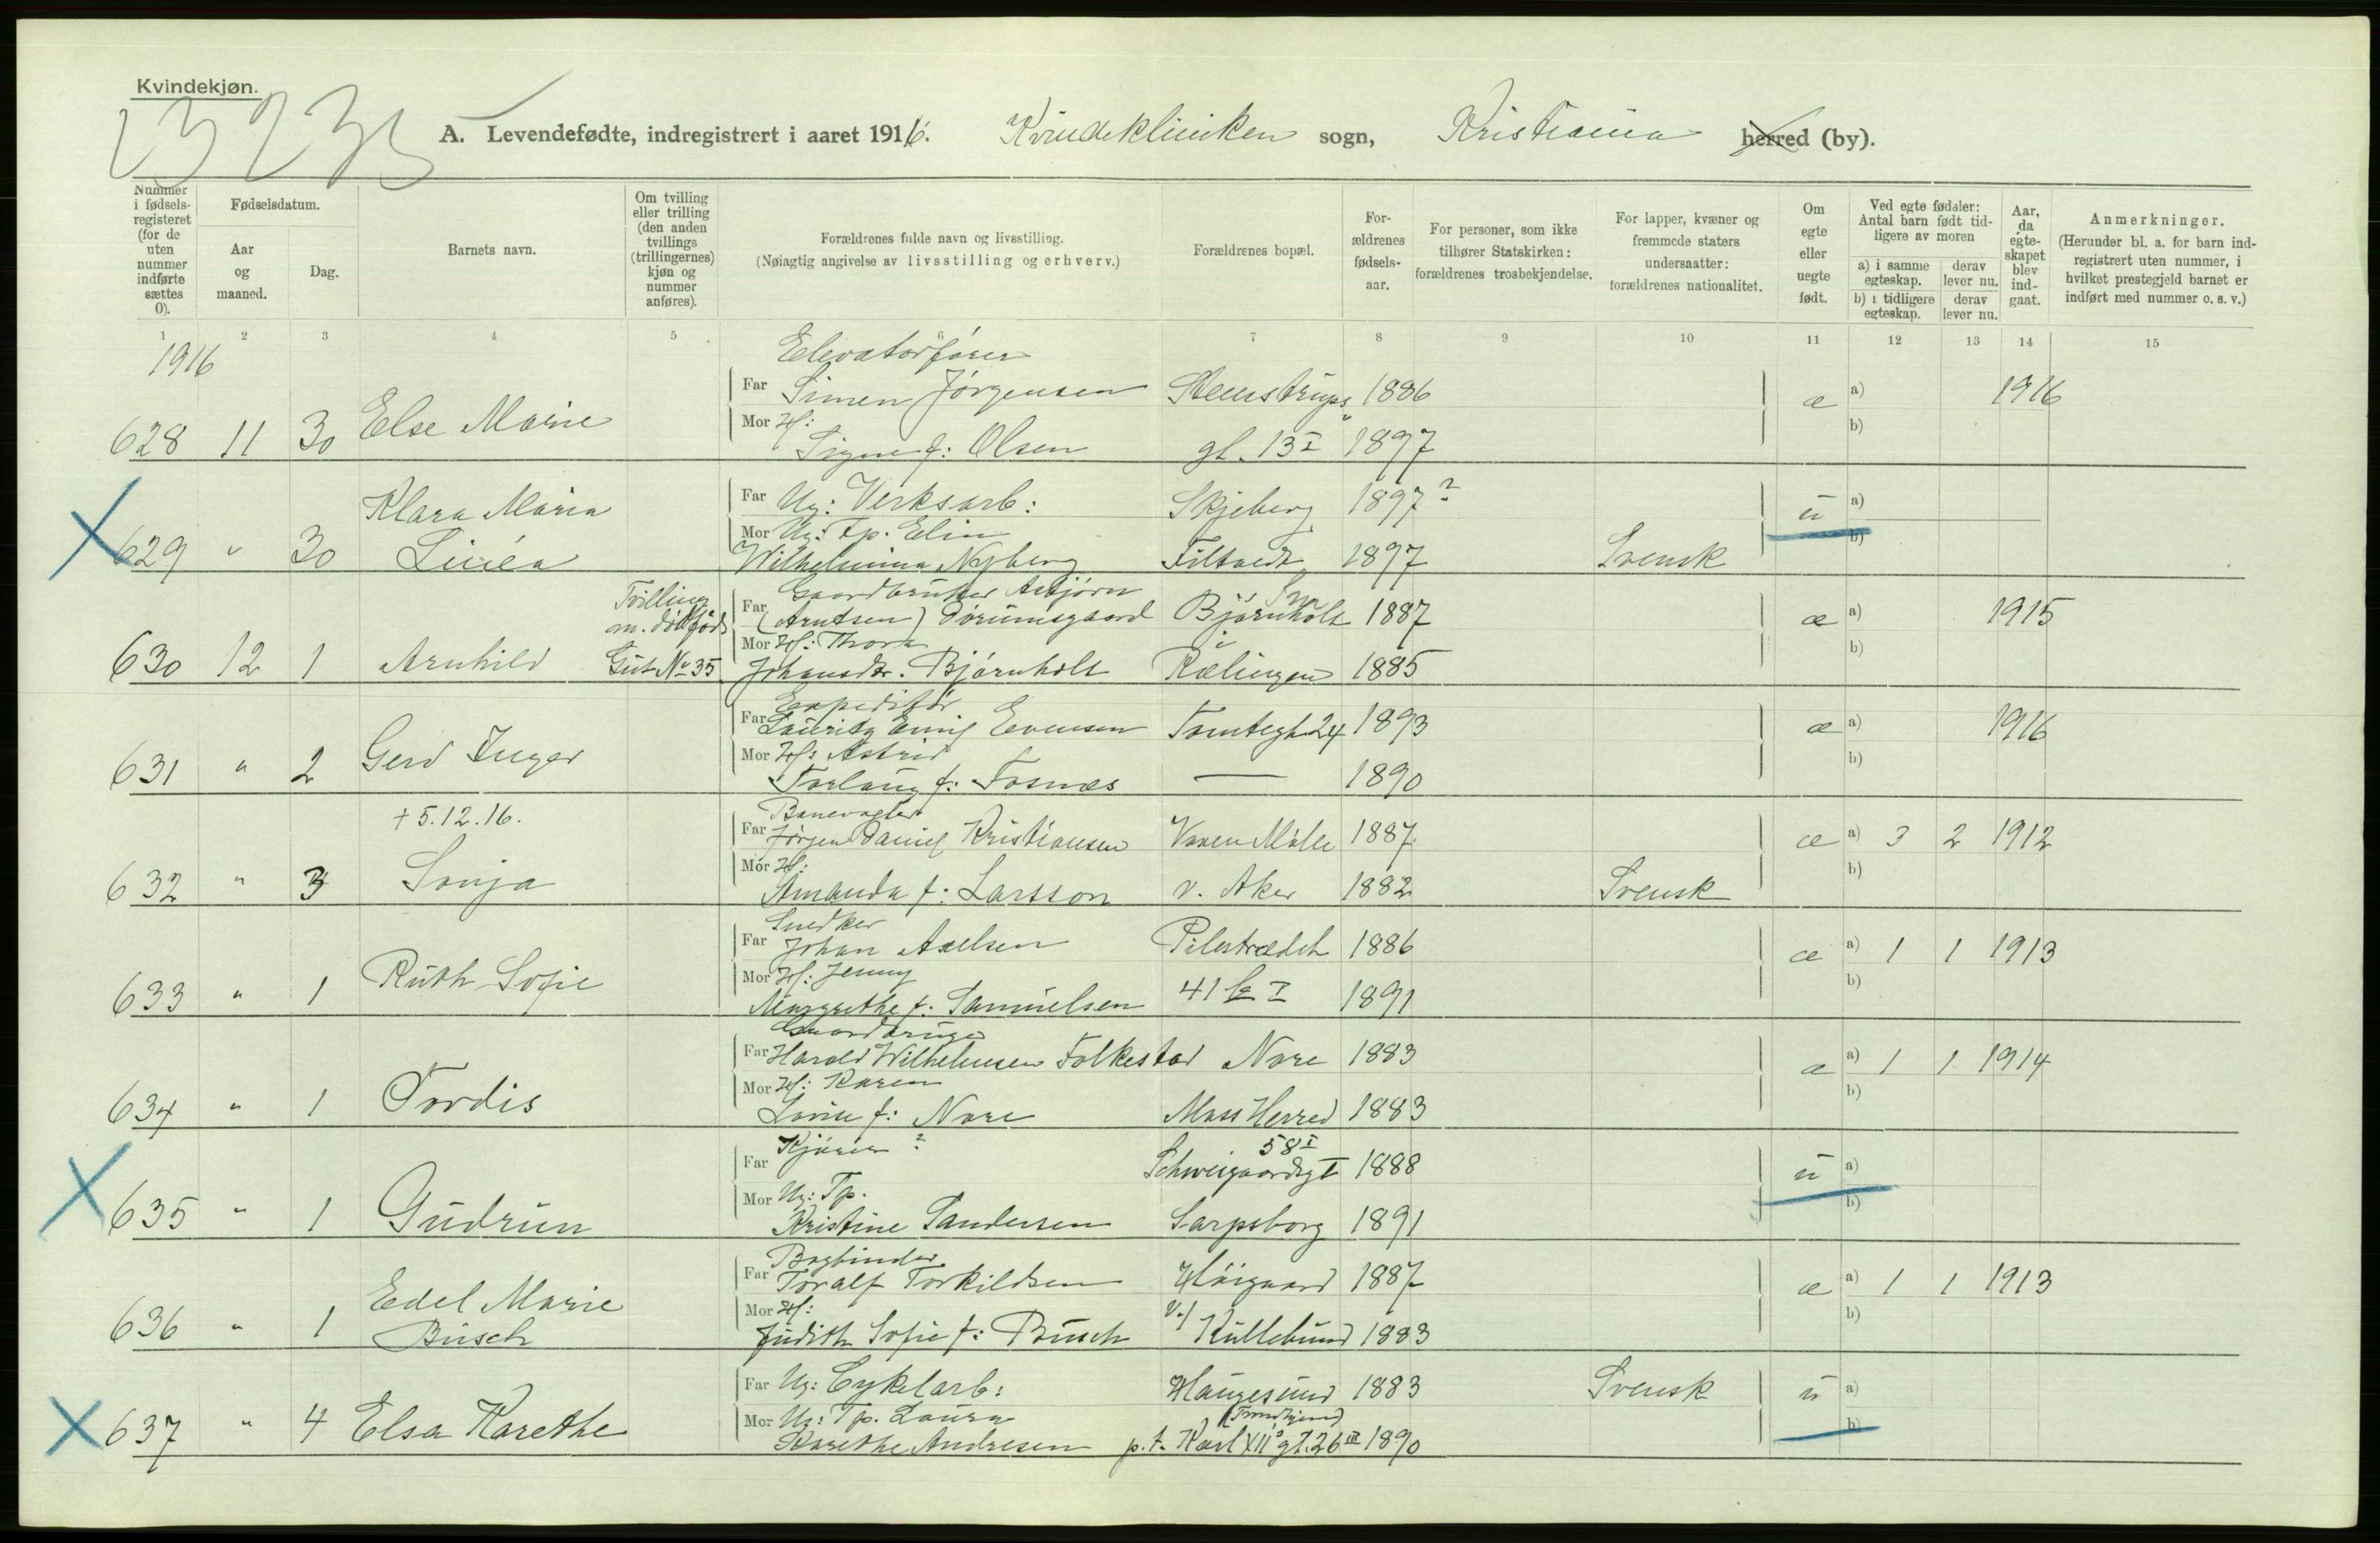 Kvindekjøn.
A. Levendefødte, indregistrert i aaret 1916. Kvindekliniken sogn, Kristiania herred (by).
Nummer i fødsels-registeret (for de uten nummer indførte sættes 0).
Fødselsdatum.
Aar og maaned.
Dag.
Barnets navn.
Om tvilling eller trilling (den anden tvillings (trillingernes) kjøn og nummer anføres).
Forældrenes fulde navn og livsstilling.
(Nøiagtig angivelse av livsstilling og erhverv.)
Forældrenes bopæl.
For-ældrenes fødsels-aar.
For personer, som ikke tilhører Statskirken: forældrenes trosbekjendelse.
For lapper, kvæner og fremmede staters undersaatter: forældrenes nationalitet.
Om egte eller uegte født.
Ved egte fødsler: Antal barn født tid-ligere av moren
a) i samme egteskap. derav lever nu.
b) i tidligere egteskap. derav lever nu.
Aar, da egte-skapet blev ind-gaat.
Anmerkninger.
(Herunder bl. a. for barn ind-registrert uten nummer, i hvilket prestegjeld barnet er indført med nummer o. s. v.)
1 2 3 4 5 6 7 8 9 10 11 12 13 14 15
1916
Elevatorfører
Far Simen Jörgensen Steenstrups 1886 æ a) 1916
628 11 30 Else Marie
Mor Hf: Signe f: Olsen gt. 13 I 1897 b)
Far Ug: Verksarb: Skjeberg 1897? u a)
629 " 30 Klara Maria Linéa
Mor Ug: Tp. Elin Wilhelmina Nyberg Filtvedt 1897 Svensk b)
Tvilling m. dödfödt Gut No 35
Far Gaardbruker Asbjörn (Arntsen) Dörumsgaard Björnholt 1887 æ a) 1915
630 12 1 Arnhild
Mor Hf: Thora Johansdtr. Björnholt i Rælingen 1885 b)
Expeditör
Far Lauritz Emil Evensen Tomtegt. 24 1893 æ a) 1916
631 " 2 Gerd Inger
Mor Hf: Astrid Torlaug f: Fosnæs — 1890 b)
+ 5.12.16.
Banevogter
Far Jörgen Daniel Kristiansen 1887 æ a) 3 2 1912
632 " 3 Sonja
Mor Hf: Amanda f: Larsson v. Aker 1882 Svensk b)
Snedker
Far Johan Axelsen Pilestrædet 1886 æ a) 1 1 1913
633 " 1 Ruth Sofie
Mor Hf: Jenny Margrethe f: Samuelsen 41 I 1891 b)
Gaardbruger
Far Harald Wilhelmsen Folkestad Nore 1883 æ a) 1 1 1914
634 " 1 Tordis
Mor Hf: Karen Lovise f: Nore Moss Herred 1883 b)
Far Kjörer ? Schweigaardsgt 58 I 1888 u a)
635 " 1 Gudrun
Mor Ug: Tp. Kristine Sandersen Sarpsborg 1891 b)
Bogbinder
Far Toralf Torkildsen Höigaard 1887 æ a) 1 1 1913
636 " 1 Edel Marie Busch
Mor Hf: Judith Sofie f: Busch v/ Kullebund 1883 b)
Far Ug: Cykelarb: Haugesund 1883 Svensk u a)
637 " 4 Elsa Karethe
Mor Ug: Tp. Laura Karethe Andresen (Trondhjem) p.t. Karl XII's gt. 26 III 1890 b)